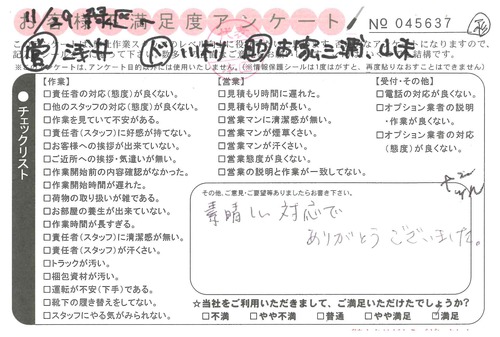 11/29 緑区
お客様満足度アンケート
No 045637
営 浅井 ド 小竹 助 お家 三浦 山本
チェックリスト
【作業】
□責任者の対応(態度)が良くない。
□他のスタッフの対応(態度)が良くない。
□作業を見ていて不安がある。
□責任者(スタッフ)に好感が持てない。
□お客様への挨拶が出来ていない。
□ご近所への挨拶・気遣いが無い。
□作業開始前の内容確認がなかった。
□作業開始時間が遅れた。
□荷物の取り扱いが雑である。
□お部屋の養生が出来ていない。
□作業時間が長すぎる。
□責任者(スタッフ)に清潔感が無い。
□責任者(スタッフ)が汗くさい。
□トラックが汚い。
□梱包資材が汚い。
□運転が不安(下手)である。
□靴下の履き替えをしてない。
□スタッフにやる気がみられない。
【営業】
□見積もり時間に遅れた。
□見積もり時間が長い。
□営業マンに清潔感が無い。
□営業マンが煙草くさい。
□営業マンが汗くさい。
□営業態度が良くない。
□営業の説明と作業が一致してない。
【受付・その他】
□電話の対応が良くない。
□オプション業者の説明
・作業が良くない。
□オプション業者の対応
(態度)が良くない。
その他、ご意見・ご要望等ありましたらお書き下さい。
素晴しい対応で
ありがとうございました。
☆当社をご利用いただきまして、ご満足いただけたでしょうか?
□不満 □やや不満 □普通 □やや満足 ☑満足